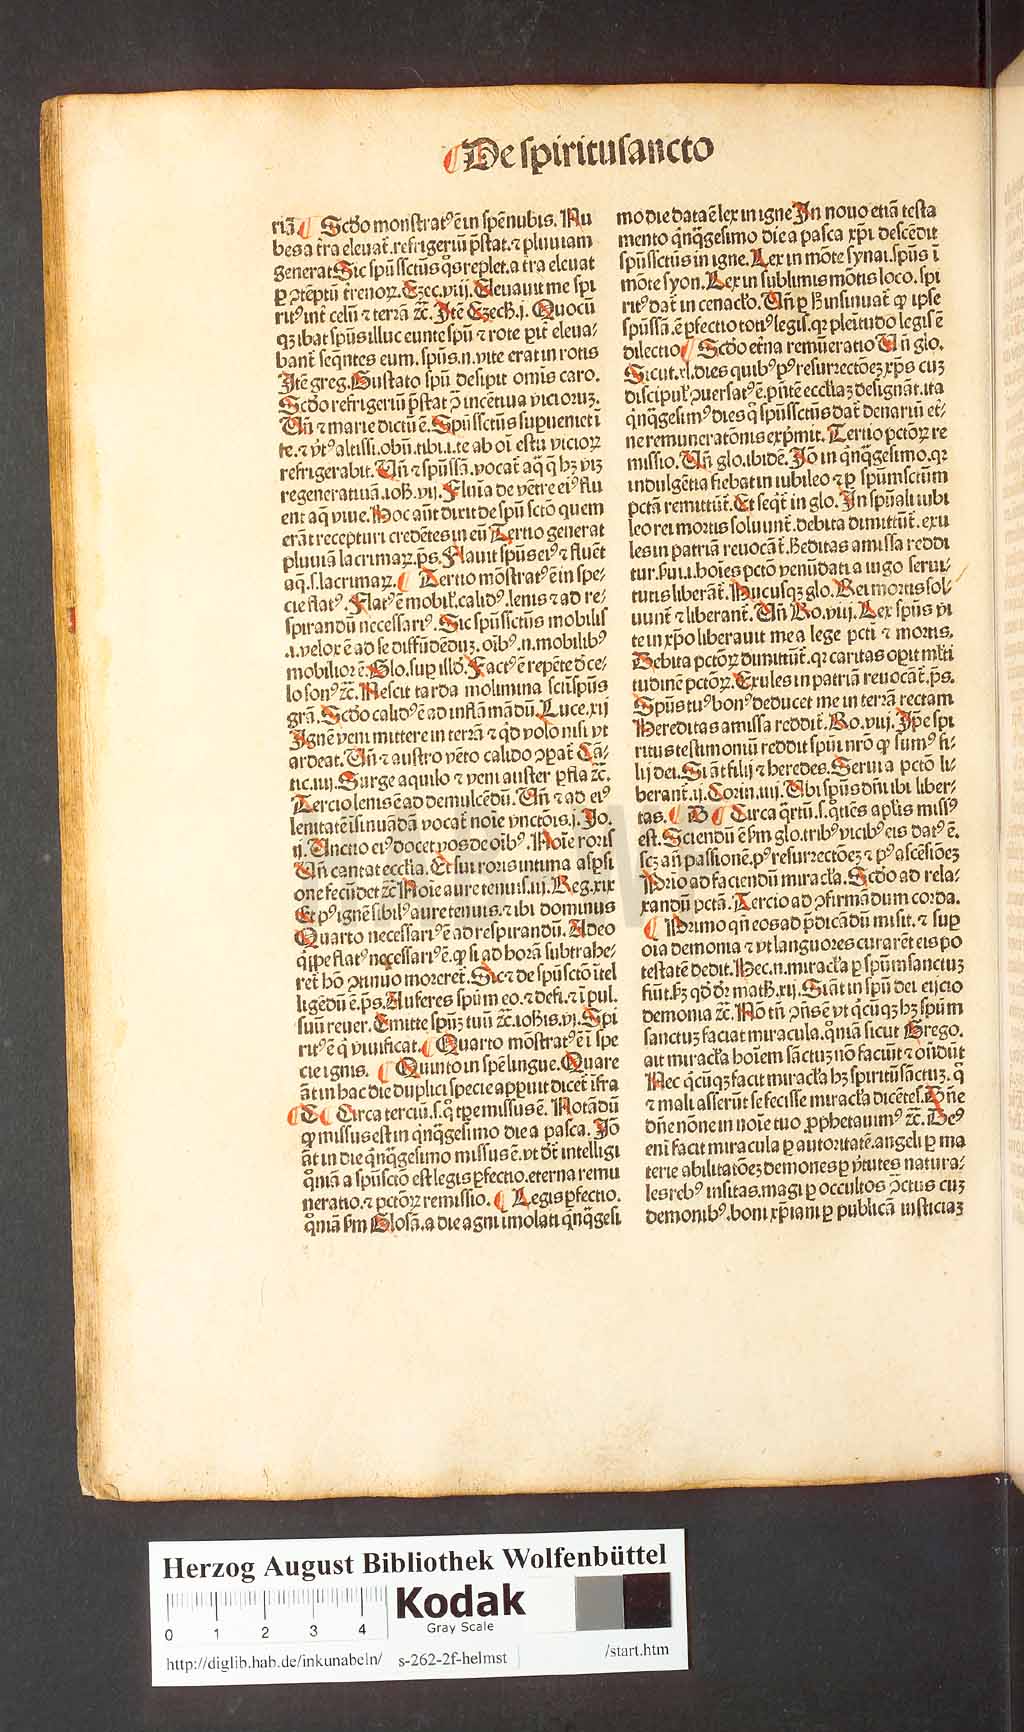 De spiritusancto
riȝ Scd̄o monstratꝰ ē in spē nubis. Nu
bes a tr̄a eleuat̄. refrigeriū p̄stat. ⁊ pluuiam
generat Sic spūs sctūs q̄s replet. a tr̄a eleuat
ꝑ ꝯtēptū trenoꝝ. Ezec. viij. Eleuauit me spi
ritꝰ int̄ celū ⁊ terrā ⁊c̄. Itē Ezech. j. Quocū
qꝫ ibat spūs illuc eunte spū ⁊ rote pit̄ eleua⸗
bant̄ seq̄ntes eum. spūs .n. vite erat in rotis
Itē greg. Gustato spū desipit omīs caro.
Scd̄o refrigeriū p̄stat ꝯ incētiua vicioruꝫ.
Vn̄ ⁊ marie dictū ē. Spūssctūs supueniet ī
te. ⁊ v̄tꝰ altissi. obū. tibi .i. te ab oī estu vicioꝝ
refrigerabit. Vn̄ ⁊ spūssā. vocat̄ aq̄ q̄ hꝫ vīȝ
regeneratiuā. ioh̄. vij. Flūia de vētre eiꝰ flu
ent aq̄ viue. Hoc aūt dixit de spū sctō quem
erāt recepturi credētes in eū Tertio generat
pluuiā lacrimaꝝ. p̄s. Flauit spūs eiꝰ ⁊ fluēt
aq̄. s. lacrimaꝝ. Tertio mōstratꝰ ē in spe⸗
cie flatꝰ. Flatꝰ ē mobil̄. calidꝰ. lenis ⁊ ad re⸗
spirandū necessariꝰ. Sic spūssctūs mobilis
.i. velox ē ad se diffūdēduꝫ. oībꝰ .n. mobilibꝰ
mobilior ē. Glo. sup illd̄. Factꝰ ē repēte d̄ ce⸗
lo sonꝰ ⁊c̄. Nescit tarda molimina sctī spūs
grā. Scd̄o calidꝰ ē ad inflāmādū. Luce. xij
Ignē veni mittere in terrā ⁊ qd̄ volo nisi vt
ardeat. Vn̄ ⁊ austro vēto calido ꝯpat̄ Cā⸗
tic. iiij. Surge aquilo ⁊ veni auster ꝑfla ⁊c̄.
Tercio lenis ē ad demulcēdū. Vn̄ ⁊ ad eiꝰ
lenitatē īsinuādā vocat̄ noīe vnctōis. j. Jo.
ij. Vnctio eiꝰ docet vos de oībꝰ. Noīe roris
Vn̄ cantat eccl̄ia. Et sui roris intima aspsi
one fecūdet ⁊c̄ Noīe aure tenuis. iij. Reg. xix
Et pꝰ ignē sibilꝰ aure tenuis. ⁊ ibi dominus
Quarto necessariꝰ ē ad respirandū. Adeo
q̄ippe flatꝰ necessariꝰ ē. qꝙ si ad horā subtrahe⸗
ret̄ hō ꝯtinuo moreret̄. Sic ⁊ de spūsctō ītel
ligēdū ē. p̄s. Auferes spūm eo. ⁊ defi. ⁊ ī pul.
suū reuer. Emitte spūꝫ tuū ⁊c̄. ioh̄is. vj. Spi
ritꝰ ē q̄ viuificat. Quarto mōstratꝰ ē ī spe
cie ignis. Quinto in spē lingue. Quare
āt in hac die duplici specie appuit dicet̄ īfra
C Circa terciū. s. q̄ tpe missus ē. Notādū
ꝙ missus est in q̄nq̄gesimo die a pasca. Jō
āt in die q̄nq̄gesimo missus ē. vt dr̄ intelligi
q̄niā a spūsctō est legis ꝑfectio. eterna remu
neratio. ⁊ pctōꝝ remissio. Legis ꝑfectio.
q̄niā fm Glosā. a die agni imolati q̄nq̄gesi
mo die data ē lex in igne In nouo etiā testa
mento q̄nq̄gesimo die a pasca xp̄i descēdit
spūssctūs in igne. Lex in mōte synai. spūs ī
mōte syon. Lex in sublimis mōtis loco. spi
ritꝰ dat̄ in cenacl̄o. Vn̄ p h̄ insinuat̄ ꝙ ipse
spūssā. ē ꝑfectio totiꝰ legis. qꝛ plenitudo legis ē
dilectio Scd̄o et̄na remūeratio Vn̄ glo.
Sicut. xl. dies quibꝰ pꝰ resurrectōeꝫ xp̄s cuꝫ
discipul̄ ꝯuersatꝰ ē. pn̄tē eccl̄iaꝫ designāt. ita
q̄nq̄gesimꝰ dies q̄ spūssctūs dat̄ denariū et̄⸗
ne remuneratōnis exp̄mit. Tertio pctōꝝ re
missio. Vn̄ glo. ibidē. Jō in q̄nq̄gesimo. qꝛ
indulgētia fiebat in iubileo ⁊ ꝑ spūmsctūm
pctā remittūt̄. Et seq̄t̄ in glo. In spūali iubi
leo rei mortis soluunt̄. debita dimittūt̄. exu
les in patriā reuocāt̄. hereditas amissa reddi
tur. hui. i. hoīes pctō venūdati a iugo serui⸗
tutis liberāt̄. Hucusqꝫ glo. Rei mortis sol⸗
uunt̄ ⁊ liberant̄. Vn̄ Ro. viij. Lex spūs vi
te in xp̄o liberauit me a lege pcti ⁊ mortis.
Debita pctōꝝ dimittūt̄. qꝛ caritas opit ml̄ti
tudinē pctōꝝ. Exules in patriā reuocāt̄. p̄s.
Spūs tuꝰ bonꝰ deducet me in terrā rectam
Hereditas amissa reddit̄. Ro. viij. Ip̄e spi
ritus testimoniū reddit spūi nr̄o ꝙ sumꝰ fi⸗
lij dei. Si āt filij ⁊ heredes. Serui a pctō li⸗
berant̄. ij. Corin. iiij. Vbi spūs dn̄i ibi liber⸗
tas. B Circa q̄rtū. s. q̄ties aplis missꝰ
est. Sciendū ē fm glo. tribꝰ vicibꝰ eis datꝰ ē.
scꝫ an̄ passionē. pꝰ resurrectōeꝫ ⁊ pꝰ ascēsiōeꝫ
Prīo ad faciendū miracl̄a. Scd̄o ad rela⸗
xandū pctā. Tercio ad ꝯfirmādum corda.
Primo qn̄ eos ad p̄dicādū misit. ⁊ sup
oīa demonia ⁊ vt languores curarēt eis po
testatē dedit. Hec .n. miracl̄a ꝑ spūm sanctuꝫ
fiūt. hꝫ qd̄ dr̄ math. xij. Si āt in spū dei eijcio
demonia ⁊c̄. Nō tn̄ ꝯn̄s ē vt q̄cūqꝫ hꝫ spūm
sanctuꝫ faciat miracula. q̄niā sicut Grego.
ait miracl̄a hoīem sāctuꝫ nō faciūt ⁊ on̄dūt
Nec q̄cūqꝫ facit miracl̄a hꝫ spiritū sāctuꝫ. q̄
⁊ mali asserūt se fecisse miracl̄a dicētes. Dn̄e
dn̄e nōne in noīe tuo ꝓphetauimꝰ ⁊c̄. Deꝰ
eni facit miracula ꝑ autoritatē. angeli ꝑ ma
terie abilitatōeꝫ demones ꝑ v̄tutes natura⸗
les rebꝰ insitas. magi ꝑ occultos ꝯctus cuꝫ
demonibꝰ. boni xp̄iani ꝑ publicā iusticiaꝫ
Herzog August Bibliothek Wolfenbüttel
Kodak
Gray Scale
0 1 2 3 4
http://diglib.hab.de/inkunabeln/ s-262-2f-helmst /start.htm